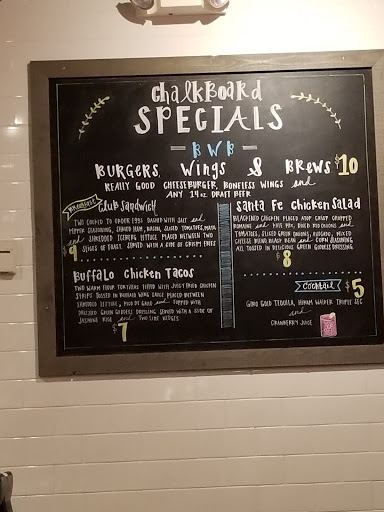 Chalkboard
SPECIALS
BWB
BURGERS, WINGS & BREWS $10
REALLY GOOD CHEESEBURGER, BONELESS WINGS and
ANY 14 oz. DRAFT BEER
BREAKFAST
Club Sandwich
TWO COOKED TO ORDER EGGS DASHED WITH SALT and
PEPPER SEASONING, SHAVED HAM, BACON, SLICED TOMATOES, MAYO
and SHREDDED ICEBERG LETTUCE PLACED BETWEEN TWO
SLICES OF TOAST. SERVED WITH A SIDE OF CRISPY FRIES
$9
Buffalo Chicken Tacos
TWO WARM FLOUR TORTILLAS FILLED WITH JUICY FRIED CHICKEN
STRIPS TOSSED IN BUFFALO WING SAUCE PLACED BETWEEN
SHREDDED LETTUCE, PICO DE GALLO and TOPPED WITH
DRIZZLED GREEN GODDESS DRESSING. SERVED WITH A SIDE OF
JASMINE RICE and TWO LIME WEDGES
$7
Santa Fe Chicken Salad
BLACKENED CHICKEN PLACED ATOP CRISP CHOPPED
ROMAINE and KALE MIX, DICED RED ONIONS and
TOMATOES, SLICED GREEN ONIONS, AVOCADO, MIXED
CHEESE BLEND BLACK BEAN and CORN SEASONING
ALL TOSSED IN DELICIOUS GREEN GODDESS DRESSING
$8
Cocktail $5
GOLD TEQUILA, HIRAM WALKER TRIPLE SEC
and
CRANBERRY JUICE